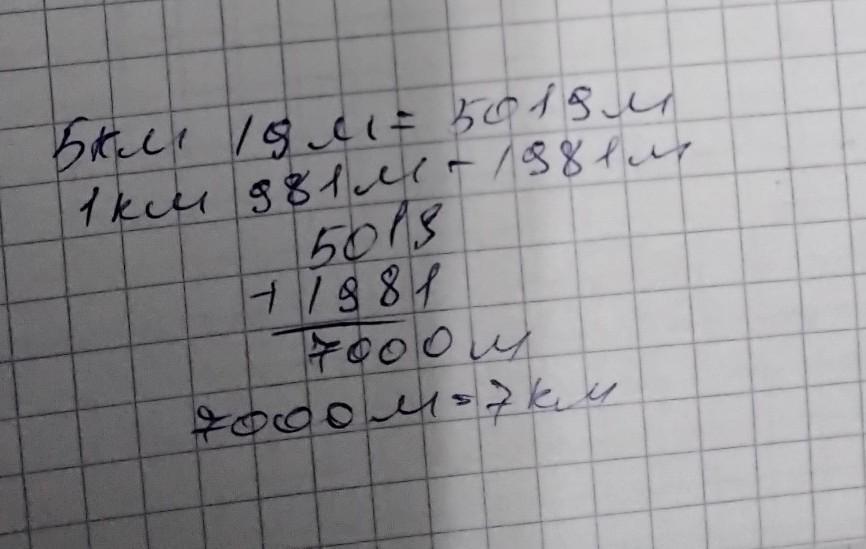 5км 19м = 5019м
1км 981м - 1981м
5019
+ 1981
7000м
7000м = 7км